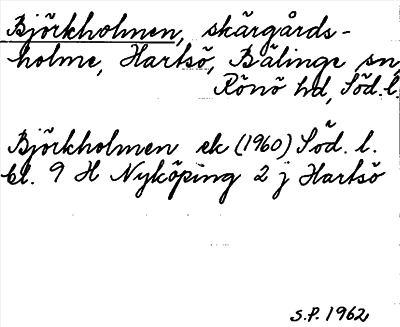 Björkholmen, skärgårds-
holme, Hartsö, Bälinge sn,
Rönö hd, Söd. l.
Björkholmen ek (1960) Söd. l.
bl. 9 H Nyköping 2 j Hartsö
S.P. 1962